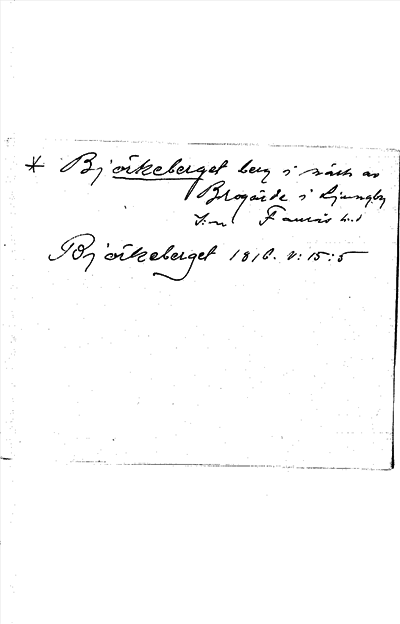 * Björkeberget berg i närh av
Brogärde i Ljungby
S:n Faurås h.d
Björkeberget 1816. v: 15: 5